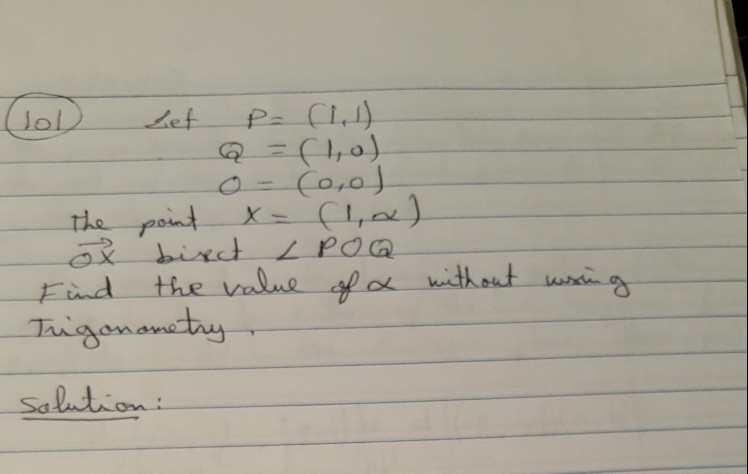 101 Let P = (1,1)
Q = (1,0)
O = (0,0)
The point X = (1,α)
OX⃗ bisect ∠ POQ
Find the value of α without using
Trigonometry.
Solution: